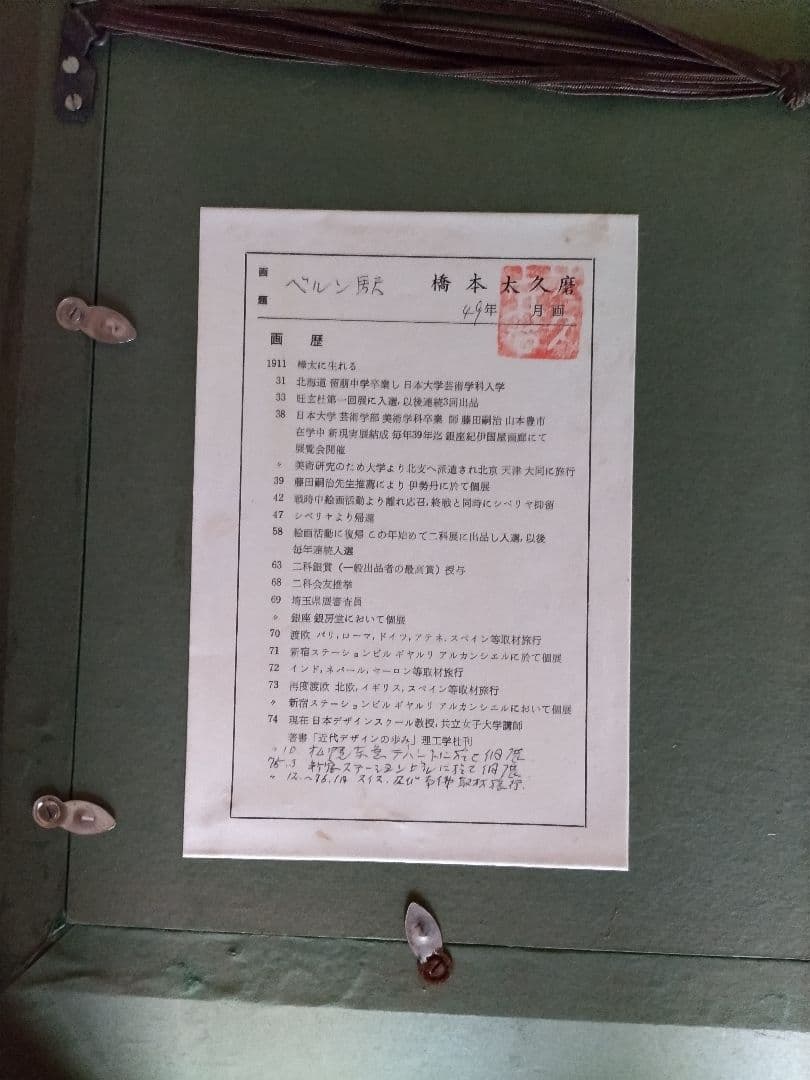 画題 ベルン駅 橋本太久磨
49年 月画
画歴
1911 樺太に生れる
31 北海道 留萠中学卒業し 日本大学芸術学科入学
33 旺玄社第一回展に入選,以後連続3回出品
38 日本大学 芸術学部 美術学科卒業 師 藤田嗣治 山本豊市
在学中 新現実展結成 毎年39年迄 銀座紀伊国屋画廊にて
展覧会開催
〃 美術研究のため大学より北支へ派遣され北京 天津 大同に旅行
39 藤田嗣治先生推薦により 伊勢丹に於て個展
42 戦時中絵画活動より離れ応召,終戦と同時にシベリヤ抑留
47 シベリヤより帰還
58 絵画活動に復帰 この年始めて二科展に出品し入選,以後
毎年連続入選
63 二科銀賞(一般出品者の最高賞)授与
68 二科会友推挙
69 埼玉県展審査員
〃 銀座 銀房堂において個展
70 渡欧 パリ,ローマ,ドイツ,アテネ,スペイン等取材旅行
71 新宿ステーションビル ギヤルリ アルカンシエルに於て個展
72 インド,ネパール,セーロン等取材旅行
73 再度渡欧 北欧,イギリス,スペイン等取材旅行
〃 新宿ステーションビル ギヤルリ アルカンシエルにおいて個展
74 現在 日本デザインスクール教授,共立女子大学講師
著書「近代デザインの歩み」理工学社刊
〃 10 東急デパートに於て個展
75.3 新宿ステーションビルに於て個展
〃 12.~76.1月 スイス.及び南佛取材旅行.